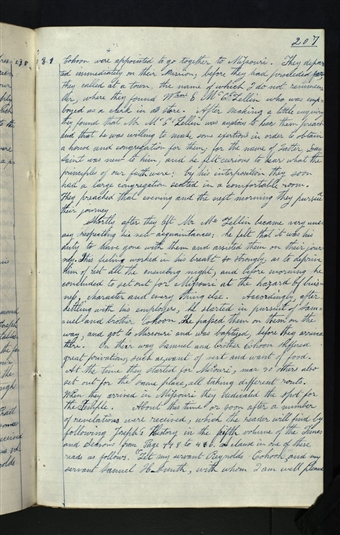 207.
Cahoon were appointed to go together to Missouri. They depar
ted immediately on their mission, before they had proceeded far
they called at a town, the name of which I do not remem
ber, where they found Wm E McLellin who was emp
loyed as a clerk in a store. After making a little enquiry
they found that Mr. McLellin was anxious to hear them preach
and that he was willing to make some exertions in order to obtain
a house and congregation for them, for the name of Latter Day
Saint was new to him, and he felt curious to hear what the
principles of our faith were; by his interposition they soon
had a large congregation seated in a comfortable room.
They preached that evening and the next morning they pursued
their journey
Shortly after they left Mr. McLellin became very une
asy respecting his new acquaintances; he felt that it was his
duty to have gone with them and assisted them on their jour
ney. This feeling worked in his breast so strongly, as to deprive
him of rest all the ensuing night, and before morning he
concluded to set out for Missouri at the hazard of busi
ness, character and every thing else. Accordingly, after
settling with his employers, he started in pursuit of Sam
uel and brother Cahoon. He passed them on the
way and got to Missouri and was baptized, before they arrived
there. On their way Samuel and brother Cahoon suffered
great privations, such as want of rest and want of food.
At the time they started for Missouri, near 50 others also
set out for the same place, all taking different routes.
When they arrived in Missouri they dedicated the spot for
the Temple. About this time or soon after a number
of revelations were received, which the reader will find by
following Joseph's History in the fifth volume of the Times
and Seasons from Page 448 to
reads as follows. "Let my servant Reynolds Cahoon, and my
servant Samuel H. Smith, with whom I am well pleas